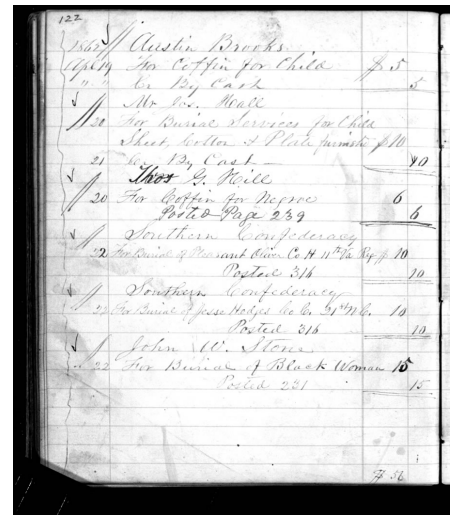 122
1865 Austin Brooks
Apl 19 For Coffin for Child $ 5
" Cr By Cash 5
Mr Jas. Hall
20 For Burial Services for Child
Sheet, Cotton & Plate furnished $ 10
21 Cr By Cash — 10
Thos G. Hill
20 For Coffin for Negroe 6
Posted Page 239 6
Southern Confederacy
22 For Burial of Pleasant Oliver Co H 11th Va Reg $ 10
Posted 316 10
Southern Confederacy
22 For Burial of Jesse Hodges Co C. 21st N.C. 10
Posted 316 10
John W. Stone
22 For Burial of Black Woman 15
Posted 231 15
$ 56